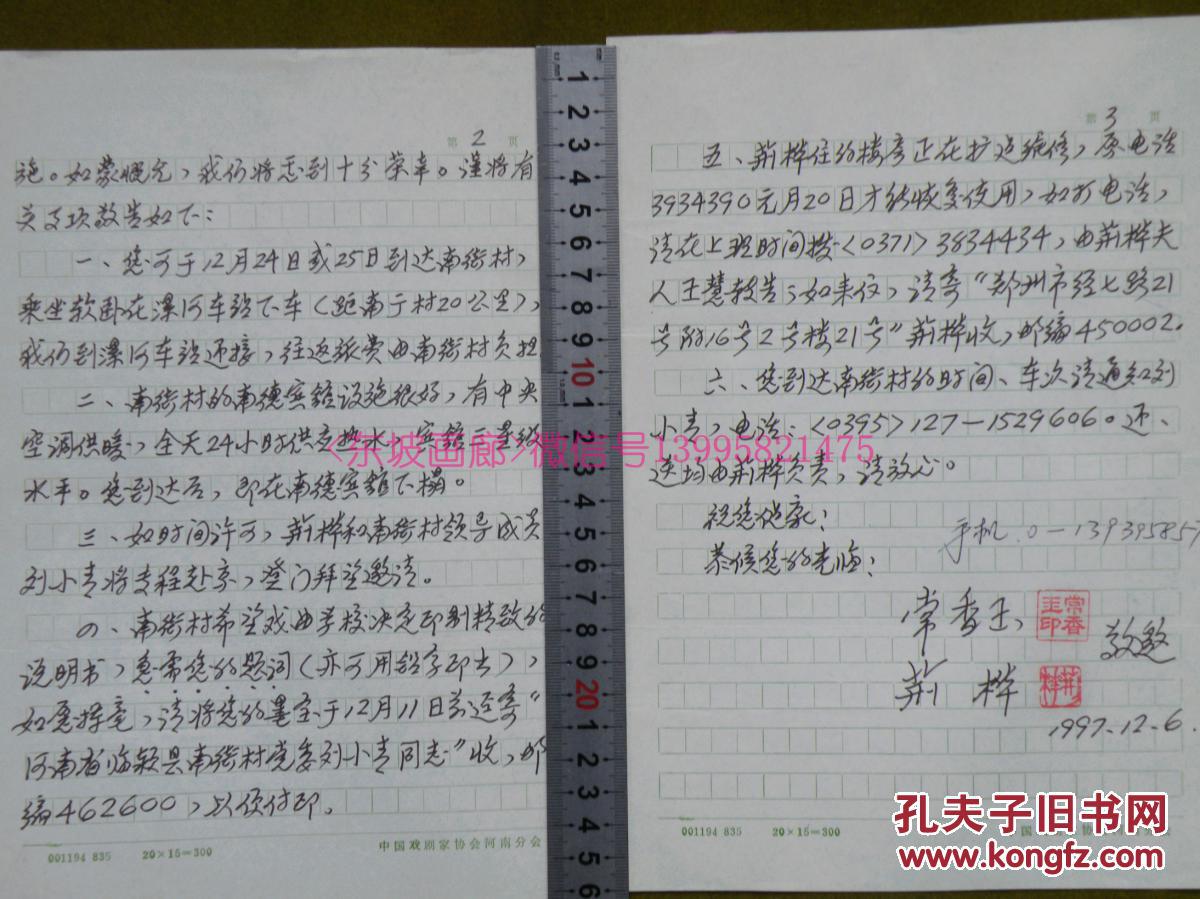 第 2 页
施。如蒙慨允，我们将感到十分荣幸。谨将有
关事项敬告如下：
一、您可于12月24日或25日到达南街村，
乘坐软卧在漯河车站下车（距南街村20公里），
我们到漯河车站迎接，往返旅费由南街村负担
二、南街村的南德宾馆设施很好，有中央
空调供暖，全天24小时供应热水，宾馆三星级
水平。您到达后，即在南德宾馆下榻。
三、如时间许可，荆桦和南街村领导成员
刘小青将专程赴京，登门拜望邀请。
四、南街村希望戏曲学校决定印制精致的
说明书，急需您的题词（亦可用铅字印出），
如愿挥毫，请将您的墨宝于12月11日前迳寄“
河南省临颍县南街村党委刘小青同志”收，邮
编462600，以便付印。
001194 835 20×15=300 中国戏剧家协会河南分会
第 3 页
五、荆桦住的楼房正在扩边维修，原电话
3934390元月20日才能恢复使用，如打电话，
请在上班时间拨〈0371〉3834434，由荆桦夫
人王慧转告；如来信，请寄“郑州市经七路21
号附16号2号楼21号”荆桦收，邮编450002.
六、您到达南街村的时间、车次请通知刘
小青，电话：〈0395〉127-1529606。迎、
送均由荆桦负责，请放心。
祝您健康！
手机.0-139395857
恭候您的光临！
常香玉、
常香玉印
敬邀
荆 桦
荆桦
1997.12.6.
001194 835 20×15=300
<东坡画廊>微信号13995821475
孔夫子旧书网
www.kongfz.com